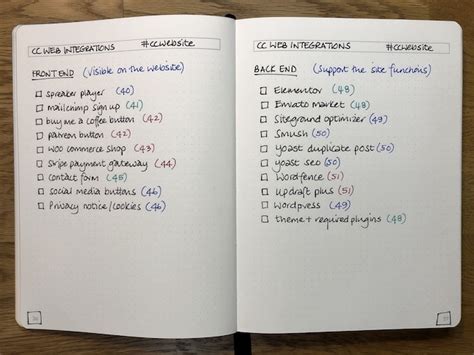 CC WEB INTEGRATIONS #CCWebsite
FRONT END (visible on the website)
spreaker player (40)
mailchimp sign up (41)
buy me a coffee button (42)
patreon button (42)
WOO commerce shop (43)
Stripe payment gateway (44)
Contact form (45)
social media buttons (46)
Privacy notice/cookies (46)
CC WEB INTEGRATIONS #CCWebsite
BACK END (support the site functions)
Elementor (48)
Envato market (48)
Siteground optimizer (49)
Smush (50)
Yoast duplicate post (50)
yoast seo (50)
Wordfence (51)
Updraft plus (51)
Wordpress (49)
theme + required plugins (48)